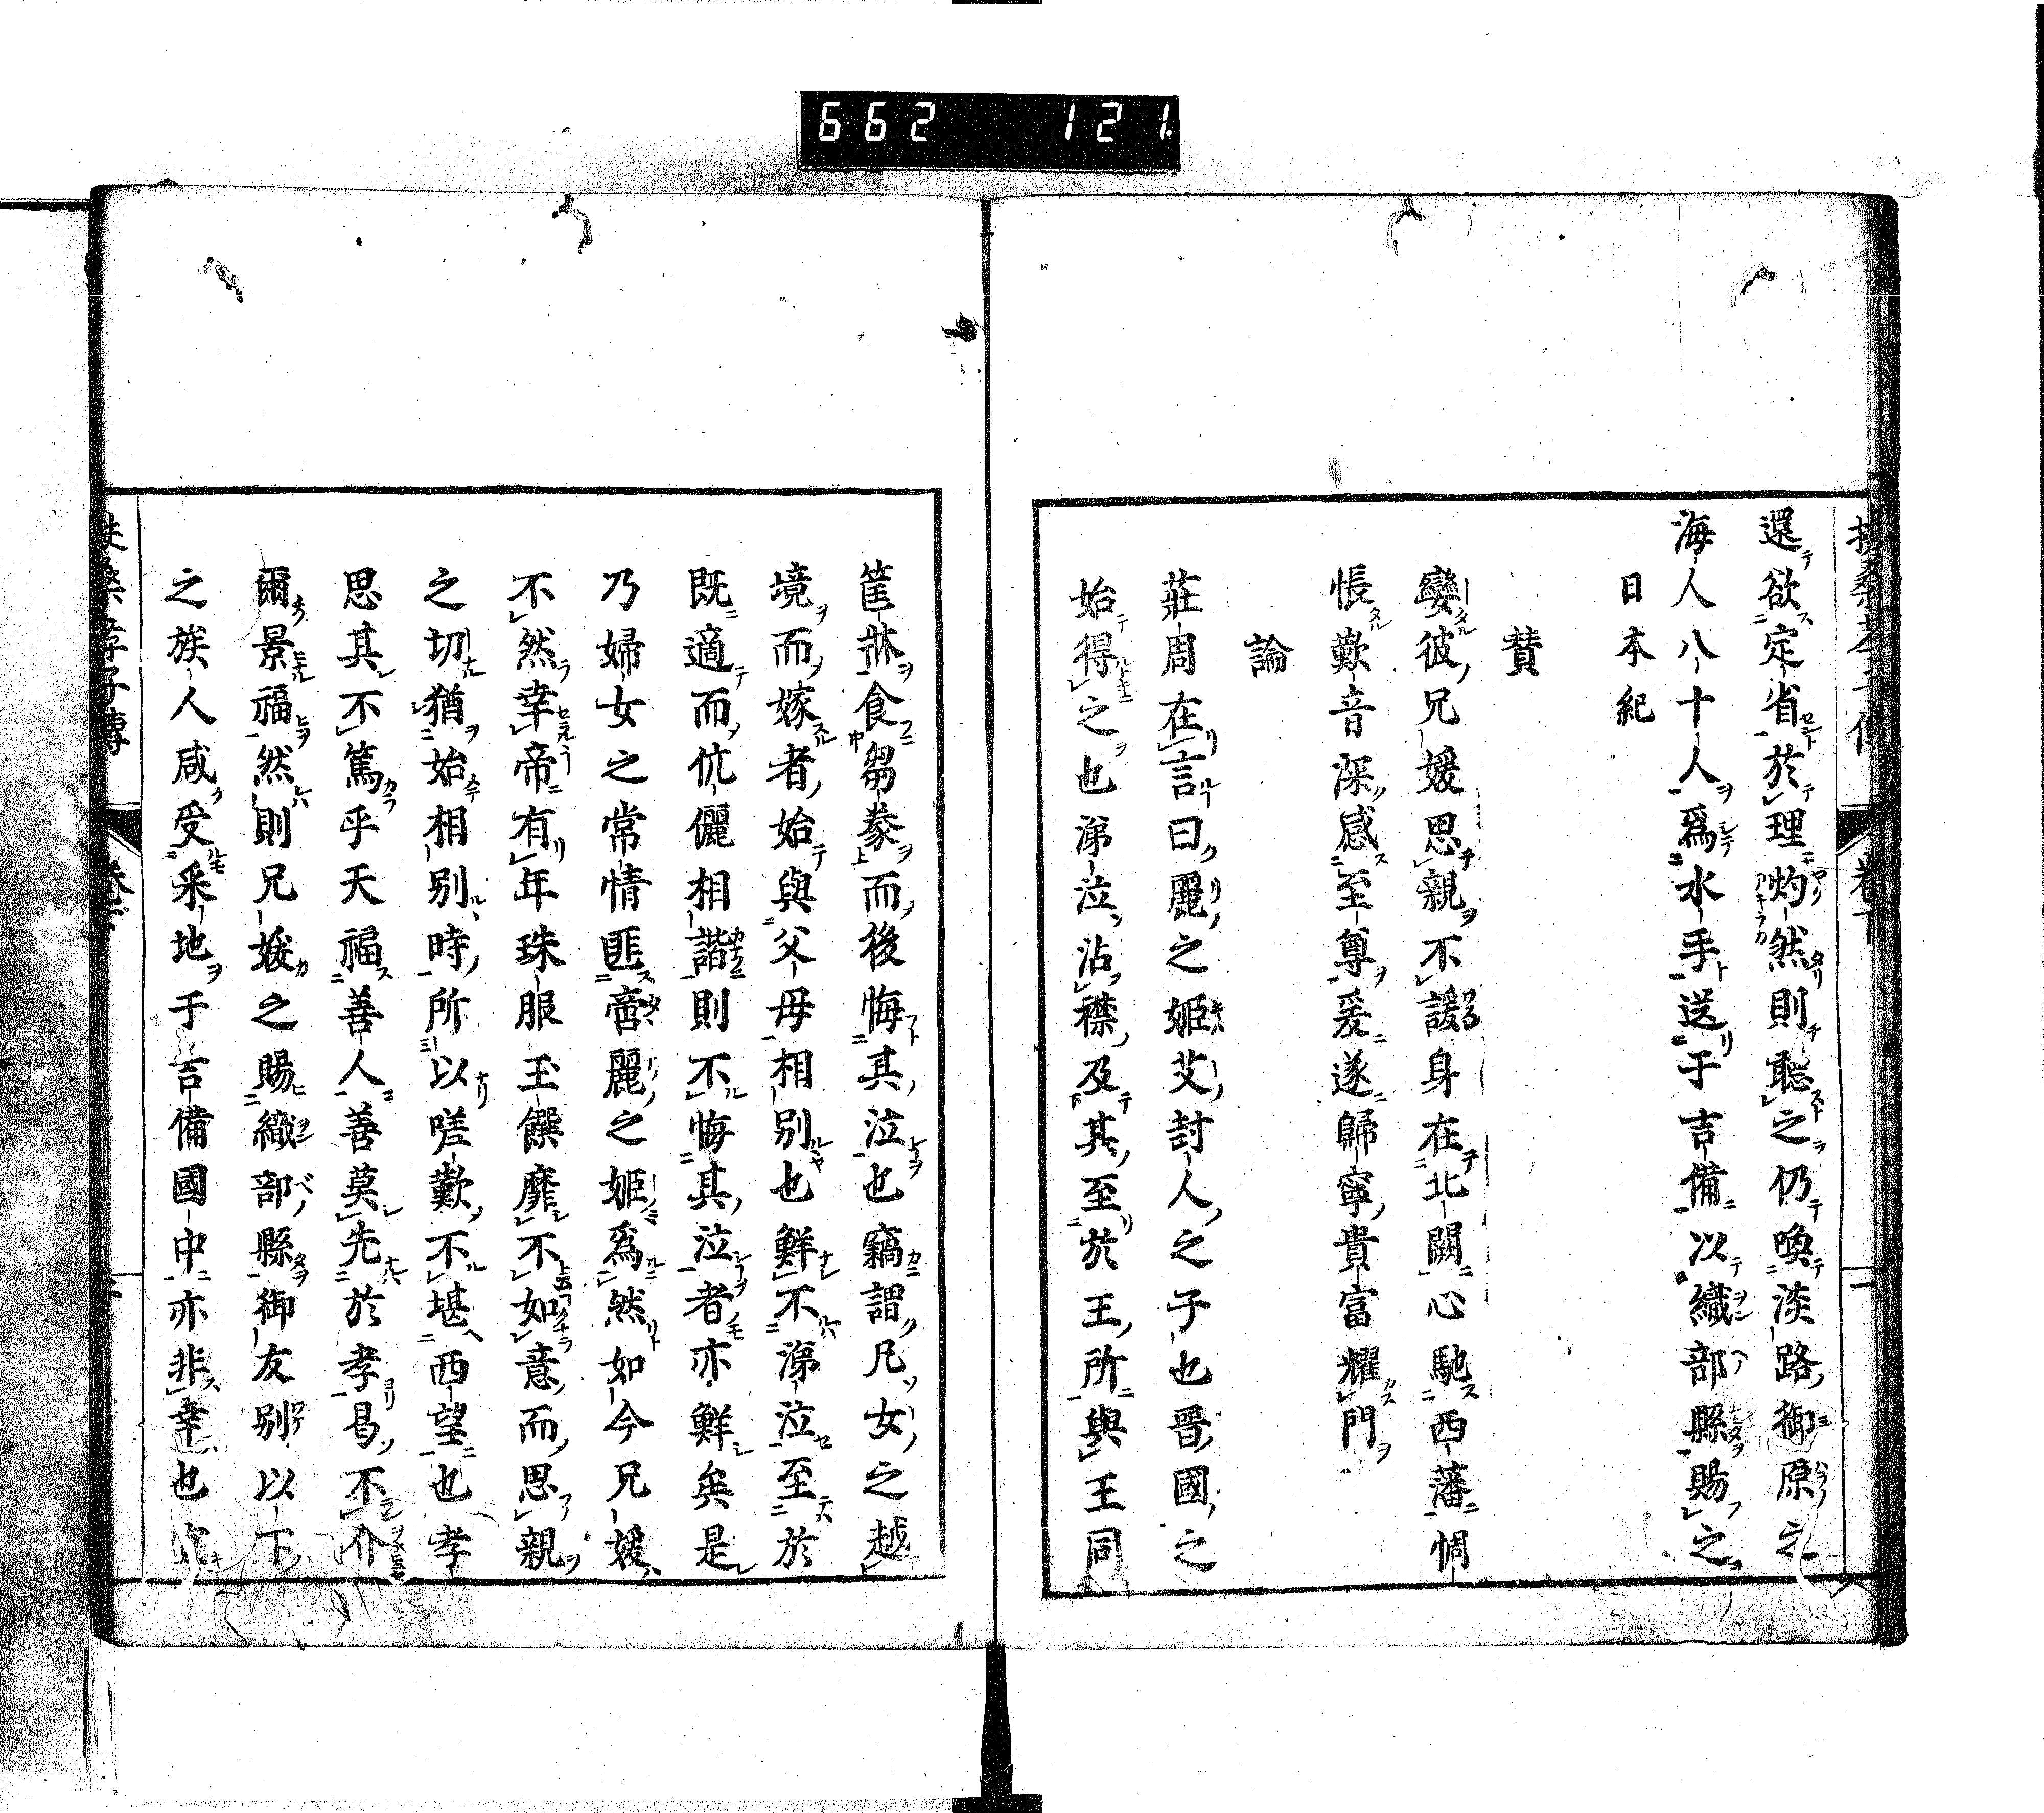 662 121
還欲定省於理灼然則聽之仍喚淡路御原之
海人八十人爲水手送于吉備以織部縣賜之
日本紀
賛
孌彼兄媛思親不諼身在北闕心馳西藩惆
悵歎音深感至尊爰遂歸寧貴富耀門
論
莊周在言曰麗之姬艾封人之子也晉國之
始得之也涕泣沾襟及其至於王所與王同
筐牀食芻豢而後悔其泣也竊謂凡女之越
境而嫁者始與父母相別也鮮不涕泣至於
既適而伉儷相諧則不悔其泣者亦鮮矣是
乃婦女之常情匪啻麗之姬爲然如今兄媛
不然幸帝有年珠服玉饌靡不如意而思親
之切猶始相別時所以嗟歎不堪西望也孝
思其不篤乎天福善人善莫先於孝曷不介
爾景福然則兄媛之賜織部縣御友別以下
之族人咸受采地于吉備國中亦非幸也
扶桑孝子傳 卷下